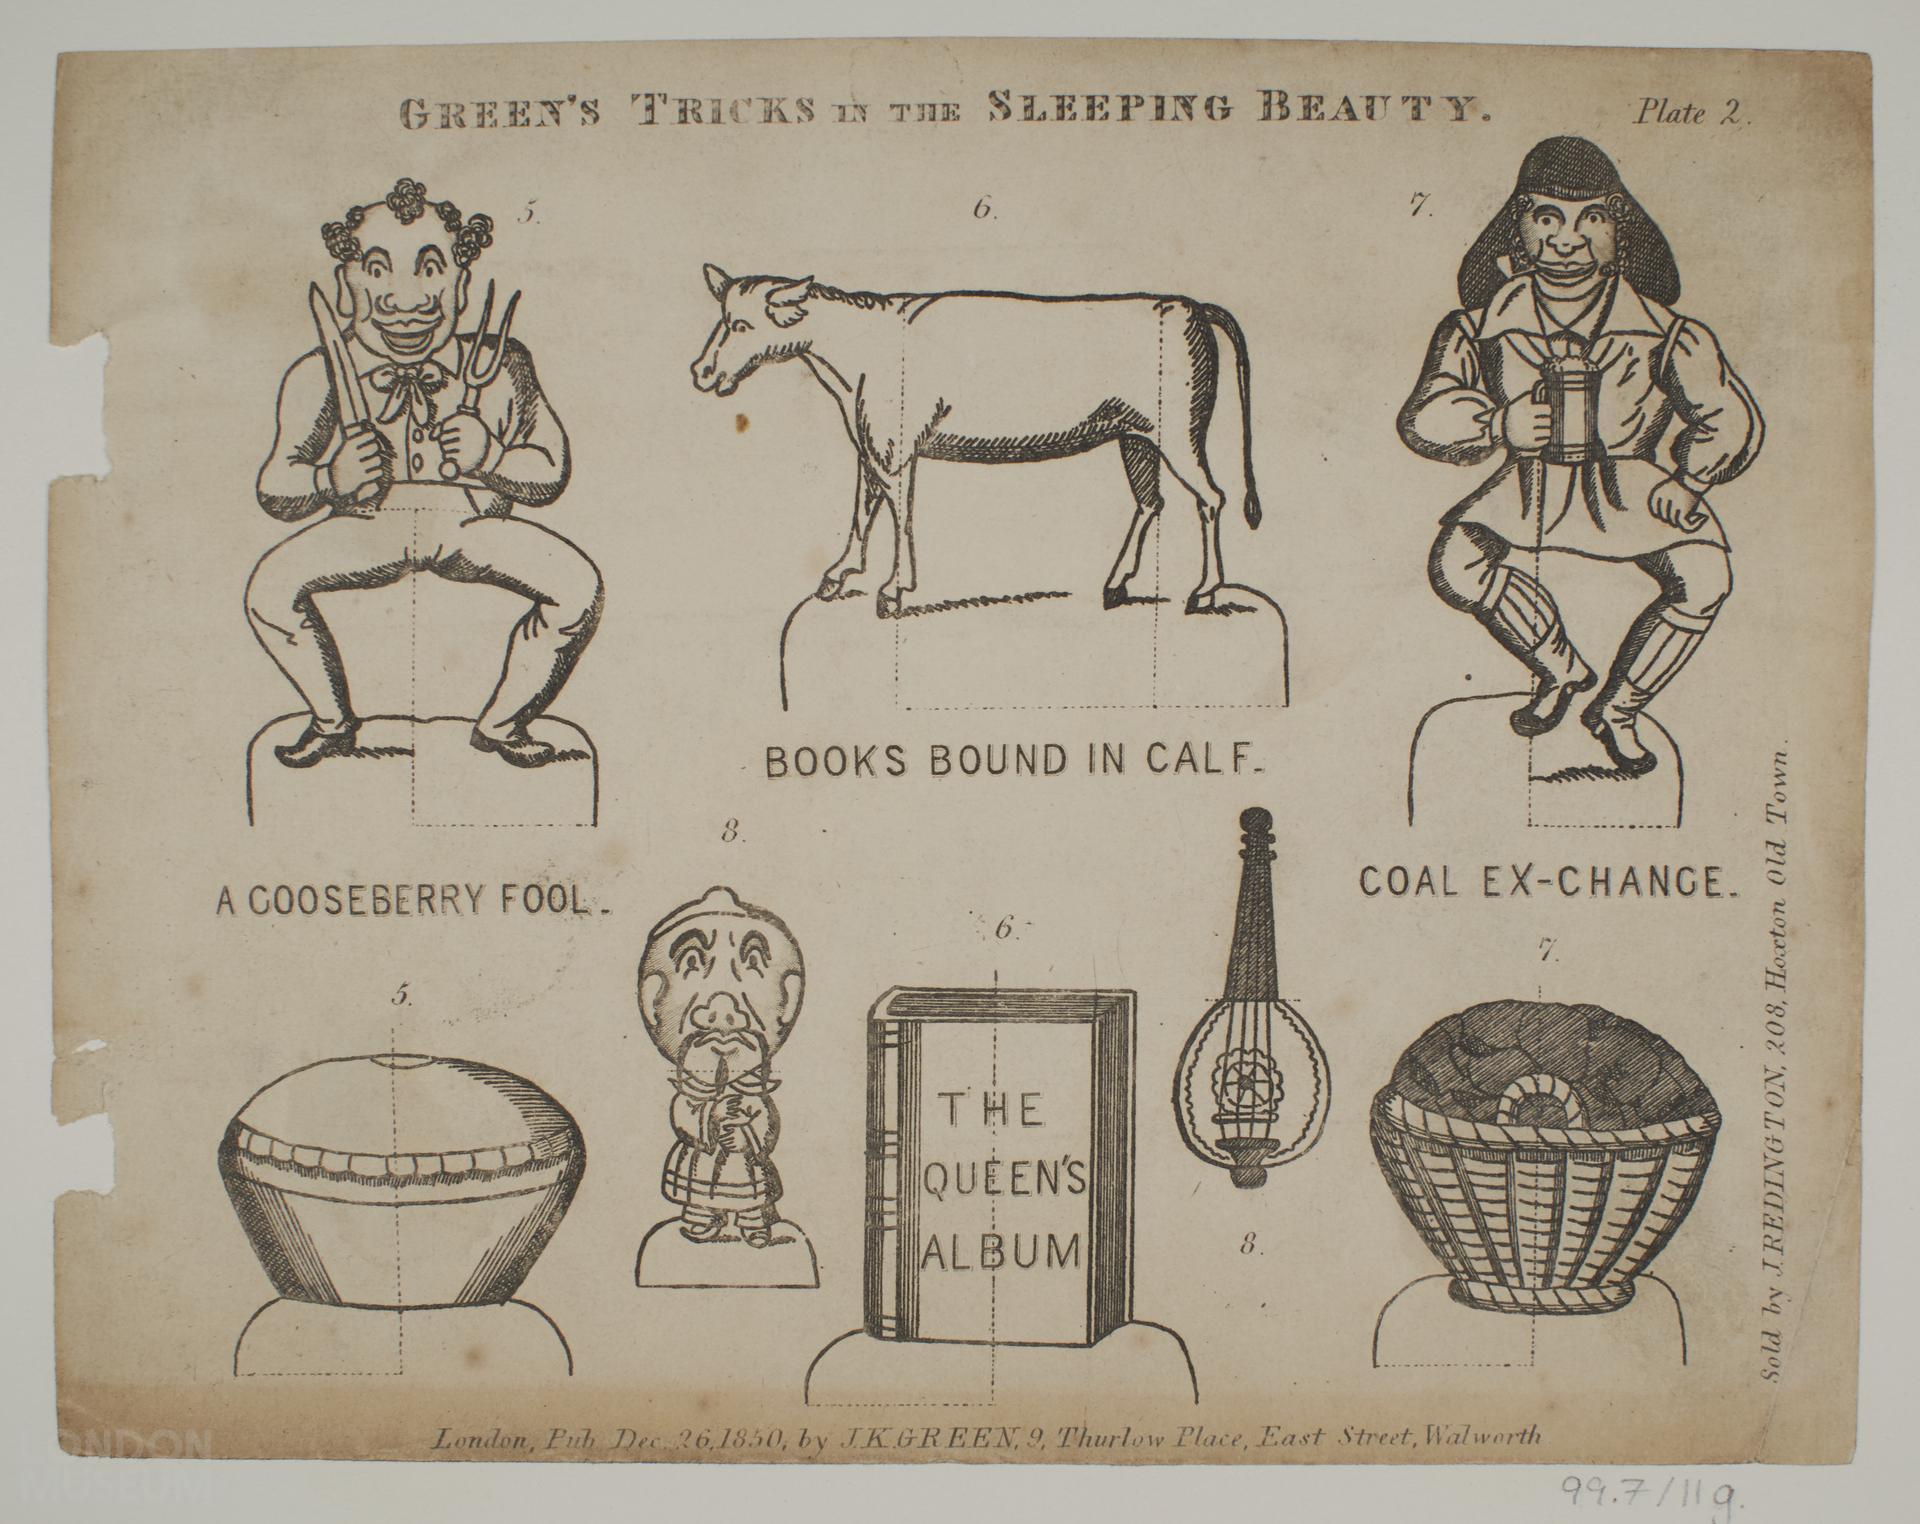 GREEN'S TRICKS IN THE SLEEPING BEAUTY.
Plate 2.
5.
6.
7.
BOOKS BOUND IN CALF.
8.
A GOOSEBERRY FOOL.
COAL EX-CHANGE.
6.
7.
5.
THE
QUEEN'S
ALBUM
8.
Sold by J. REDINGTON, 208, Hoxton Old Town.
London, Pub Dec. 26, 1850, by J.K. GREEN, 9, Thurlow Place, East Street, Walworth
LONDON
MUSEUM
99.7/11g.